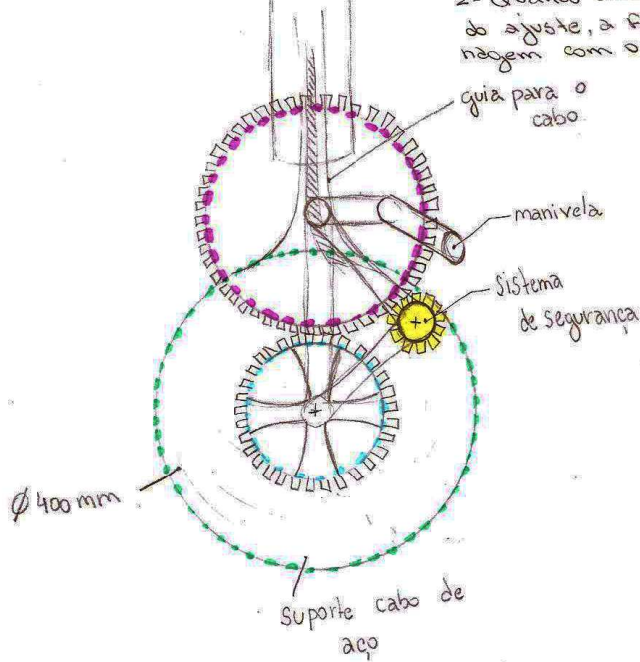 do ajuste, a
nagem com o
guia para o
cabo
manivela
sistema
de segurança
Ø 400 mm
suporte cabo de
aço